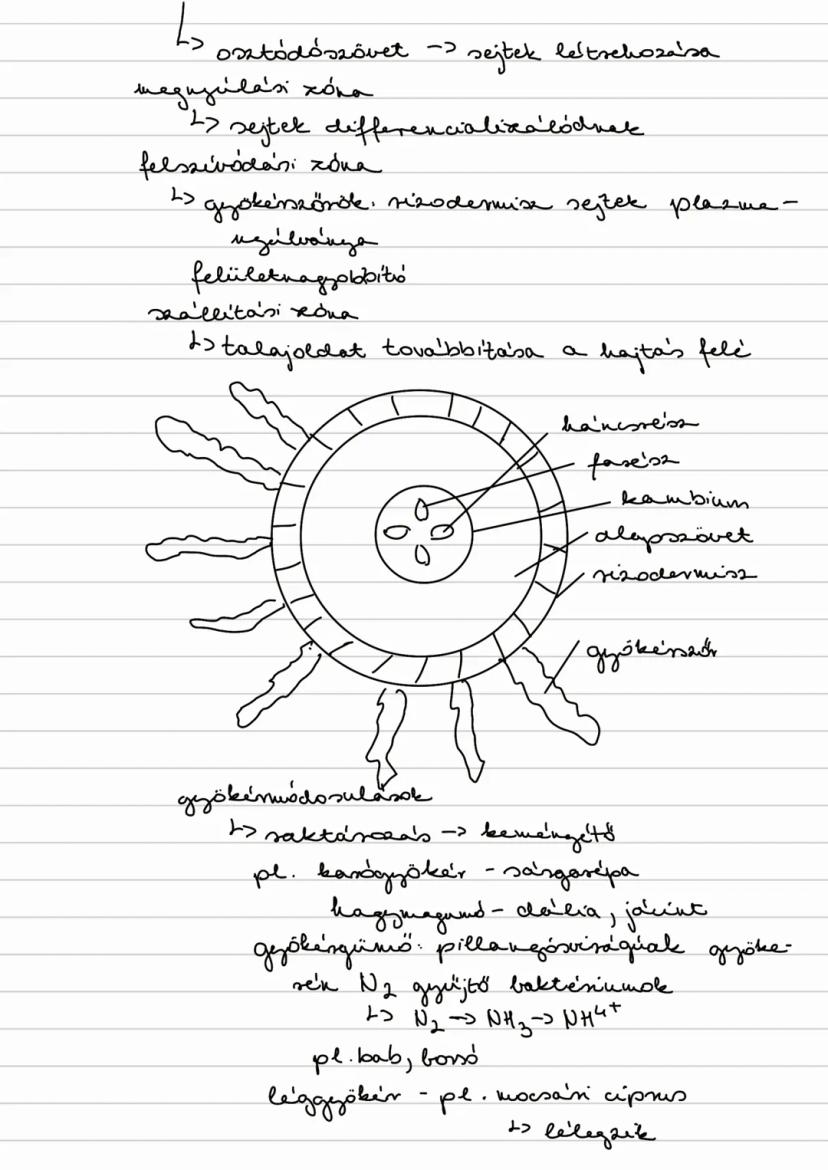 ↳ osztódószövet → sejtek létrehozása
megnyúlási zóna
↳ sejtek differencializálódnak
felszívódási zóna
↳ gyökérszőrök: rizodermisz sejtek plazma-
nyúlványa
felületnagyobbító
szállítási zóna
↳ talajoldat továbbítása a hajtás felé
háncsrész
farész
kambium
alapszövet
rizodermisz
gyökérszőr
gyökérmódosulások
↳ raktározás → keményítő
pl. karógyökér - sárgarépa
hagymagumó - dália, jácint
gyökérgümő: pillangósvirágúak gyöke-
rén N₂ gyűjtő baktériumok
↳ N₂ → NH₃ → NH⁴⁺
pl. bab, borsó
léggyökér - pl. mocsári ciprus
↳ lélegzik